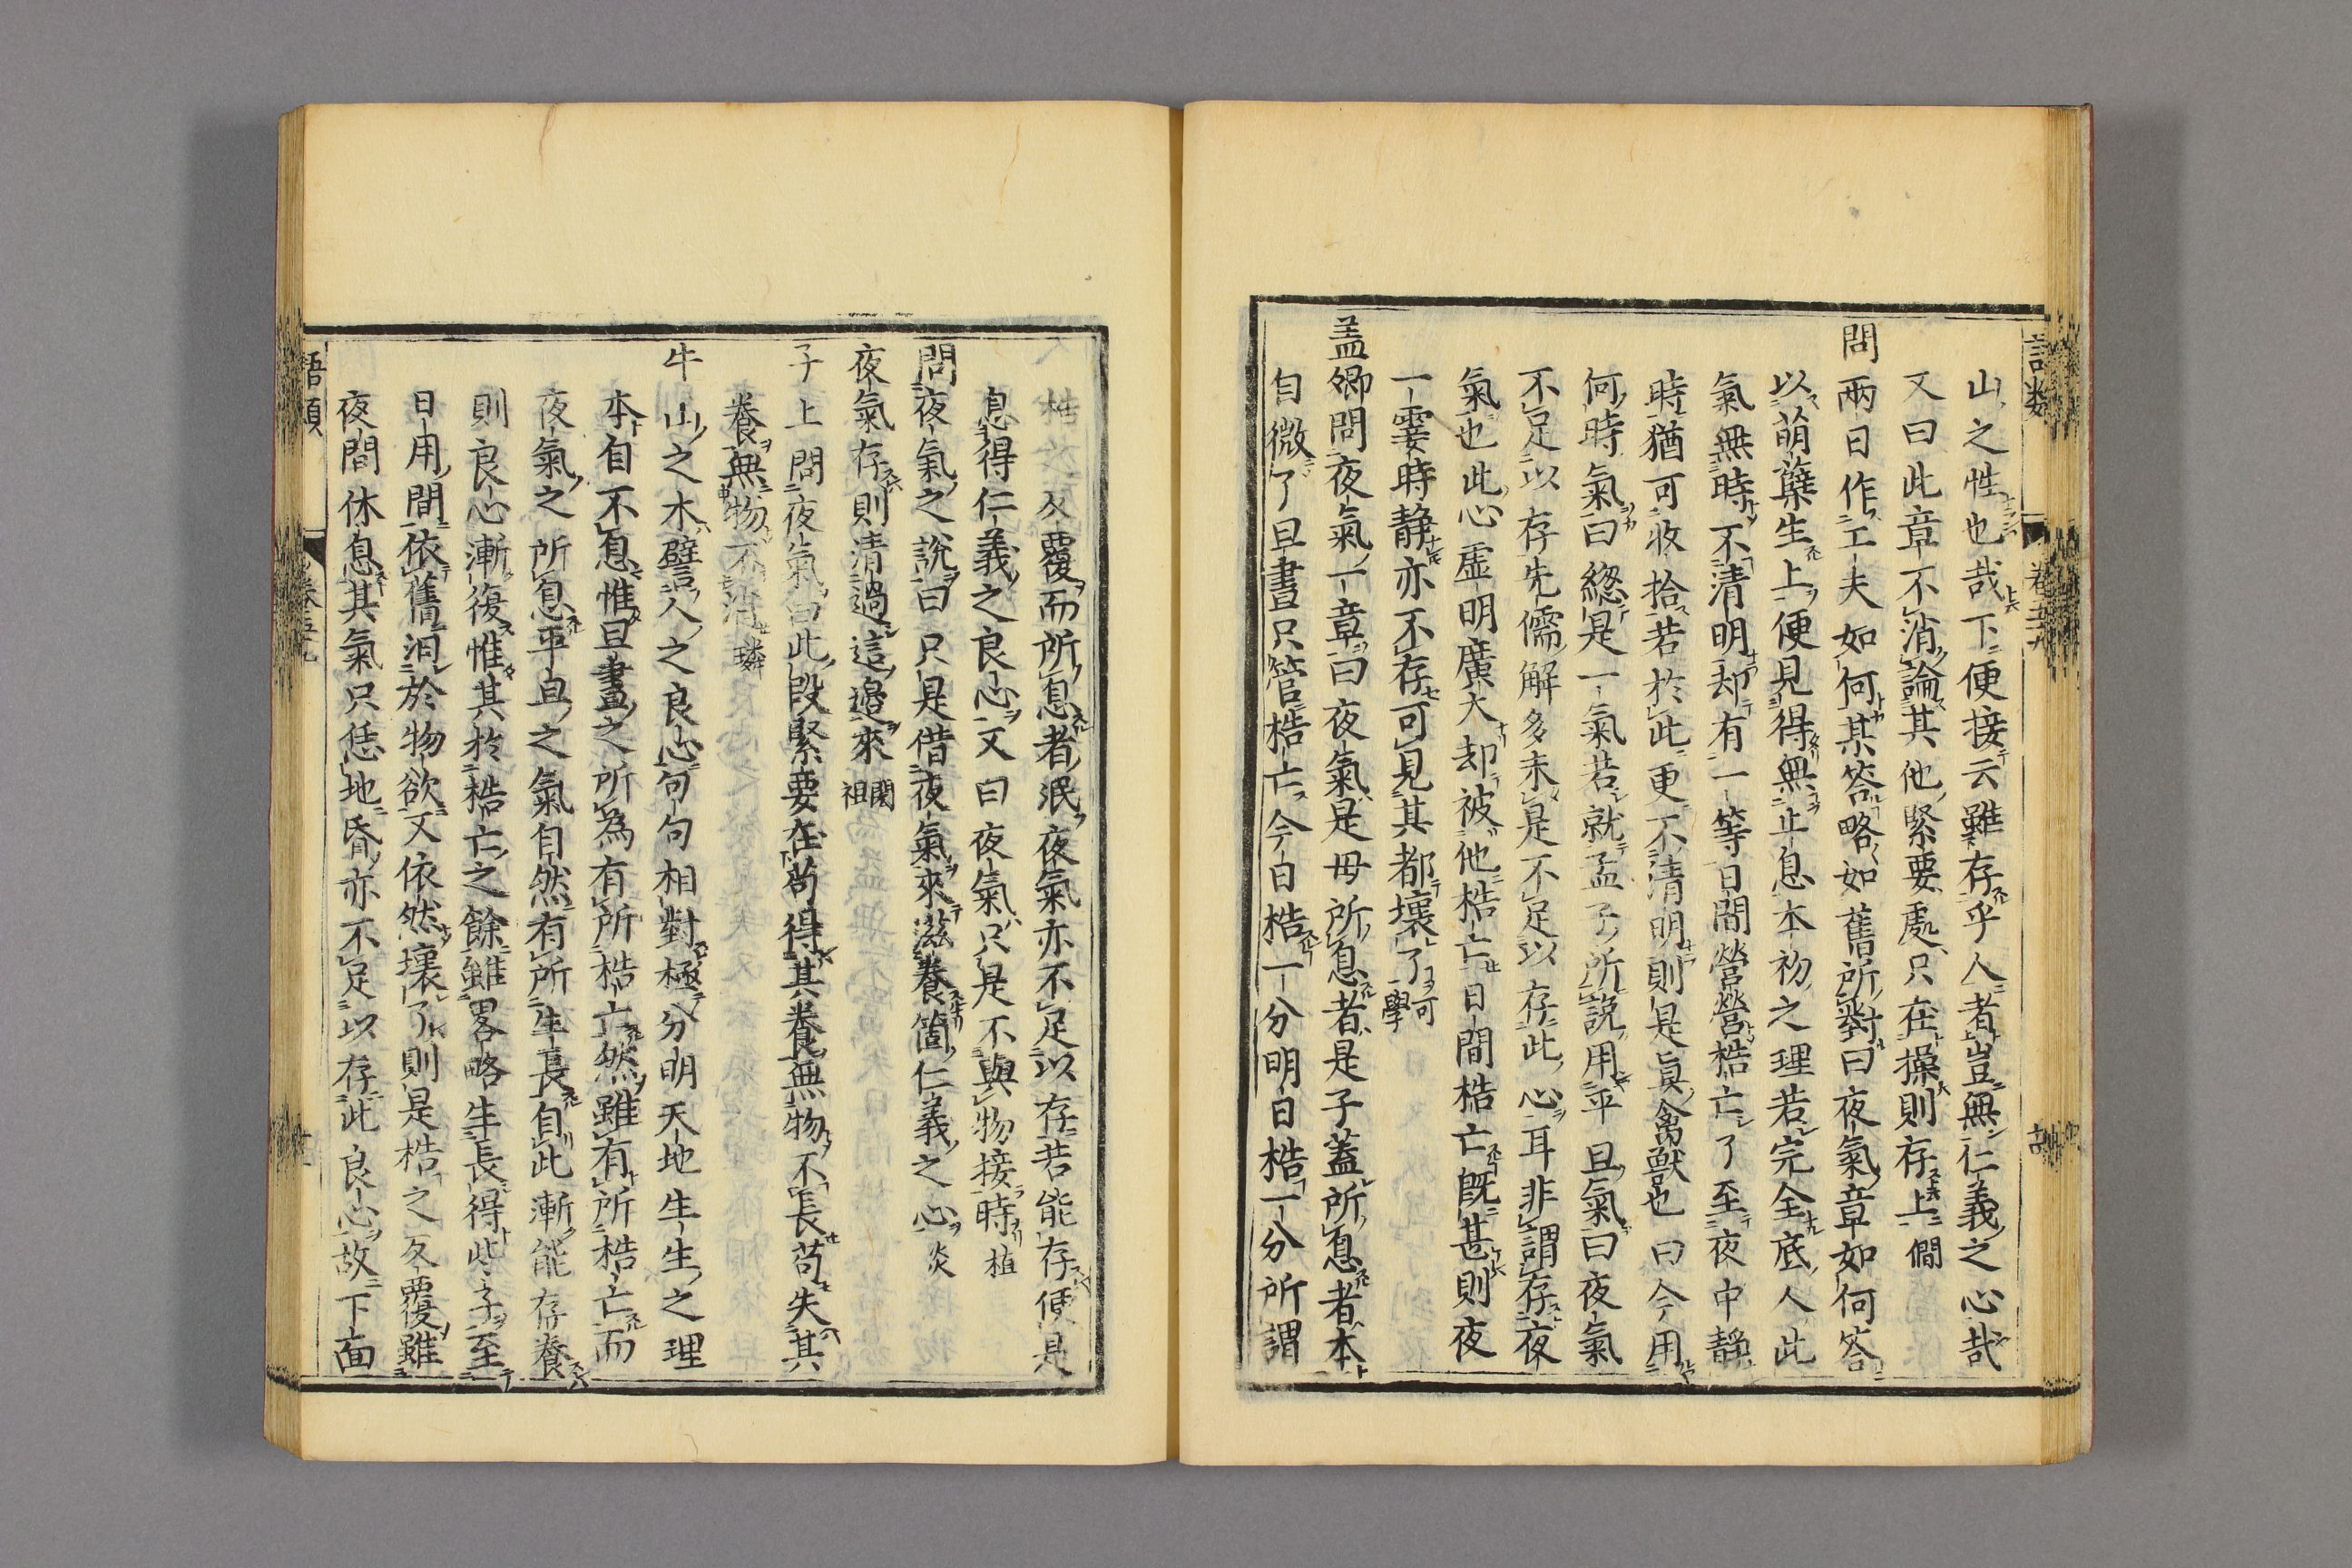 山之性也哉下便接云雖存乎人者豈無仁義之心哉
又曰此章不消論其他緊要處只在操則存上僩
問兩日作工夫如何某答略如舊所對曰夜氣章如何答
以萌蘖生上便見得無止息本初之理若完全底人此
氣無時不清明却有一等日間營營梏亡了至夜中靜
時猶可收拾若於此更不清明則是眞禽獸也曰今用
何時氣曰緫是一氣若就孟子所説用平旦氣曰夜氣
不足以存先儒解多未是不足以存此心耳非謂存夜
氣也此心虛明廣大却被他梏亡日間梏亡旣甚則夜
一霎時静亦不存可見其都壞了可學
盖卿問夜氣一章曰夜氣是母所息者是子蓋所息者本
自微了旦晝只管梏亡今日梏一分明日梏一分所謂
梏之反覆而所息者泯夜氣亦不足以存若能存便是
息得仁義之良心又曰夜氣只是不與物接時植
問夜氣之説曰只是借夜氣來滋養箇仁義之心炎
夜氣存則清過這邉來閎祖
子上問夜氣曰此段緊要在苟得其養無物不長苟失其
養無物不消璘
牛山之木譬人之良心句句相對極分明天地生生之理
本自不息惟旦晝之所爲有所梏亡然雖有所梏亡而
夜氣之所息平旦之氣自然有所生長自此漸能存養
則良心漸復惟其於梏亡之餘雖畧略生長得些子至
日用間依舊汨於物欲又依然壞了則是梏之反覆雖
夜間休息其氣只恁地昏亦不足以存此良心故下面
語類 卷五十九